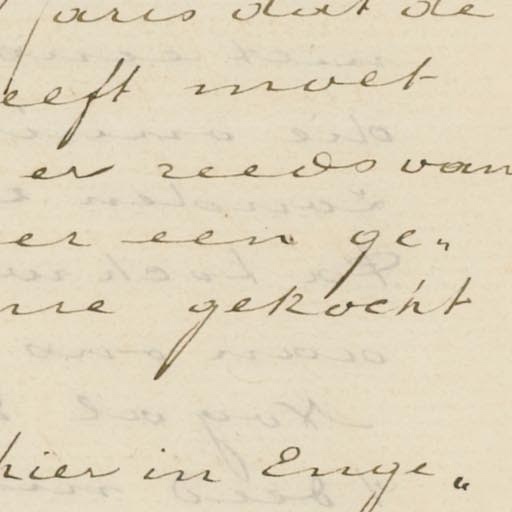 Paris dat de
eeft moet
er reeds van
er een ge„
me gekocht
hier in Enge„